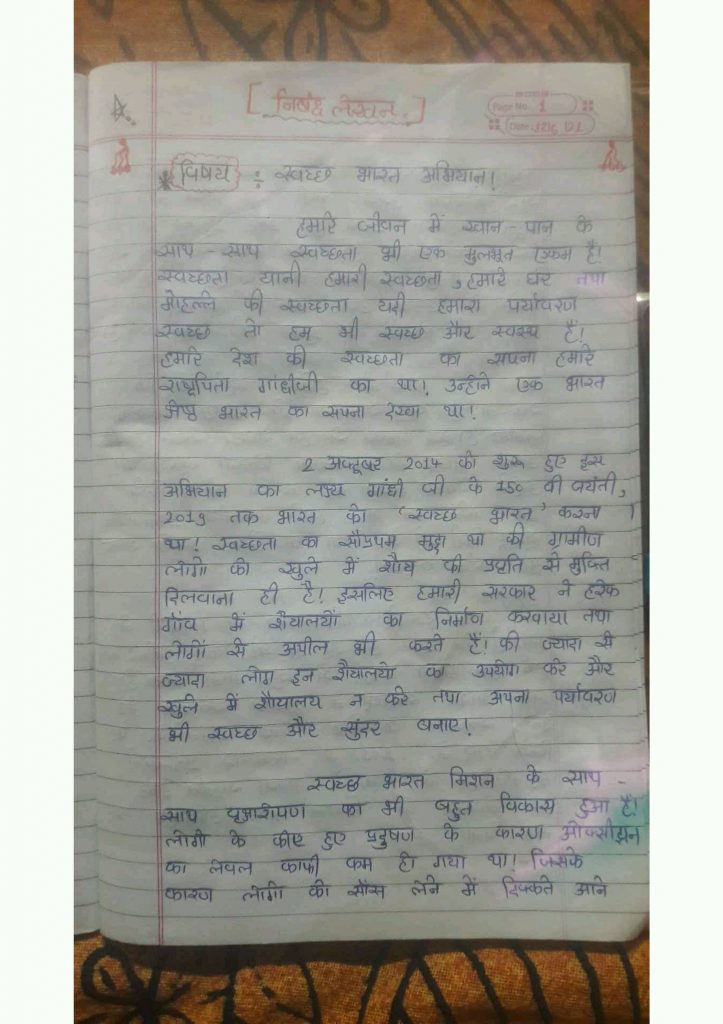 [ निबंध लेखन. ]
Page No. 1
Date:
विषय ÷ स्वच्छ भारत अभियान!
हमारे जीवन में खान-पान के
साथ-साथ स्वच्छता भी एक मुलभूत हैं!
स्वच्छता यानी हमारी स्वच्छता, हमारे घर तथा
मोहल्ले की स्वच्छता यदी हमारा पर्यावरण
स्वच्छ तो हम भी स्वच्छ और स्वस्थ हैं!
हमारे देश की स्वच्छता का सपना हमारे
गांधीजी का था! उन्होने एक भारत
श्रेष्ठ भारत का सपना देखा था!
2 अक्टूबर 2014 को शुरू हुए इस
अभियान का लक्ष्य गांधी जी के 150 वी जयंती,
2019 तक भारत को 'स्वच्छ भारत' करना
था! स्वच्छता का मुद्दा था की ग्रामीण
लोगो को खुले में की से मुक्ति
दिलवाना ही है! इसलिए हमारी सरकार ने हरेक
गांव में का निर्माण करवाया तथा
लोगों से अपील भी करते हैं! की ज्यादा से
ज्यादा लोग इन का उपयोग करे और
खुले में न करे तथा अपना पर्यावरण
भी स्वच्छ और सुंदर बनाए!
स्वच्छ भारत मिशन के साथ-
साथ का भी बहुत विकास हुआ हैं!
लोगो के कीए हुए प्रदुषण के कारण
का लेवल काफी कम हो गया था! जिसके
कारण लोगो को साँस लेने में दिक्कते आने